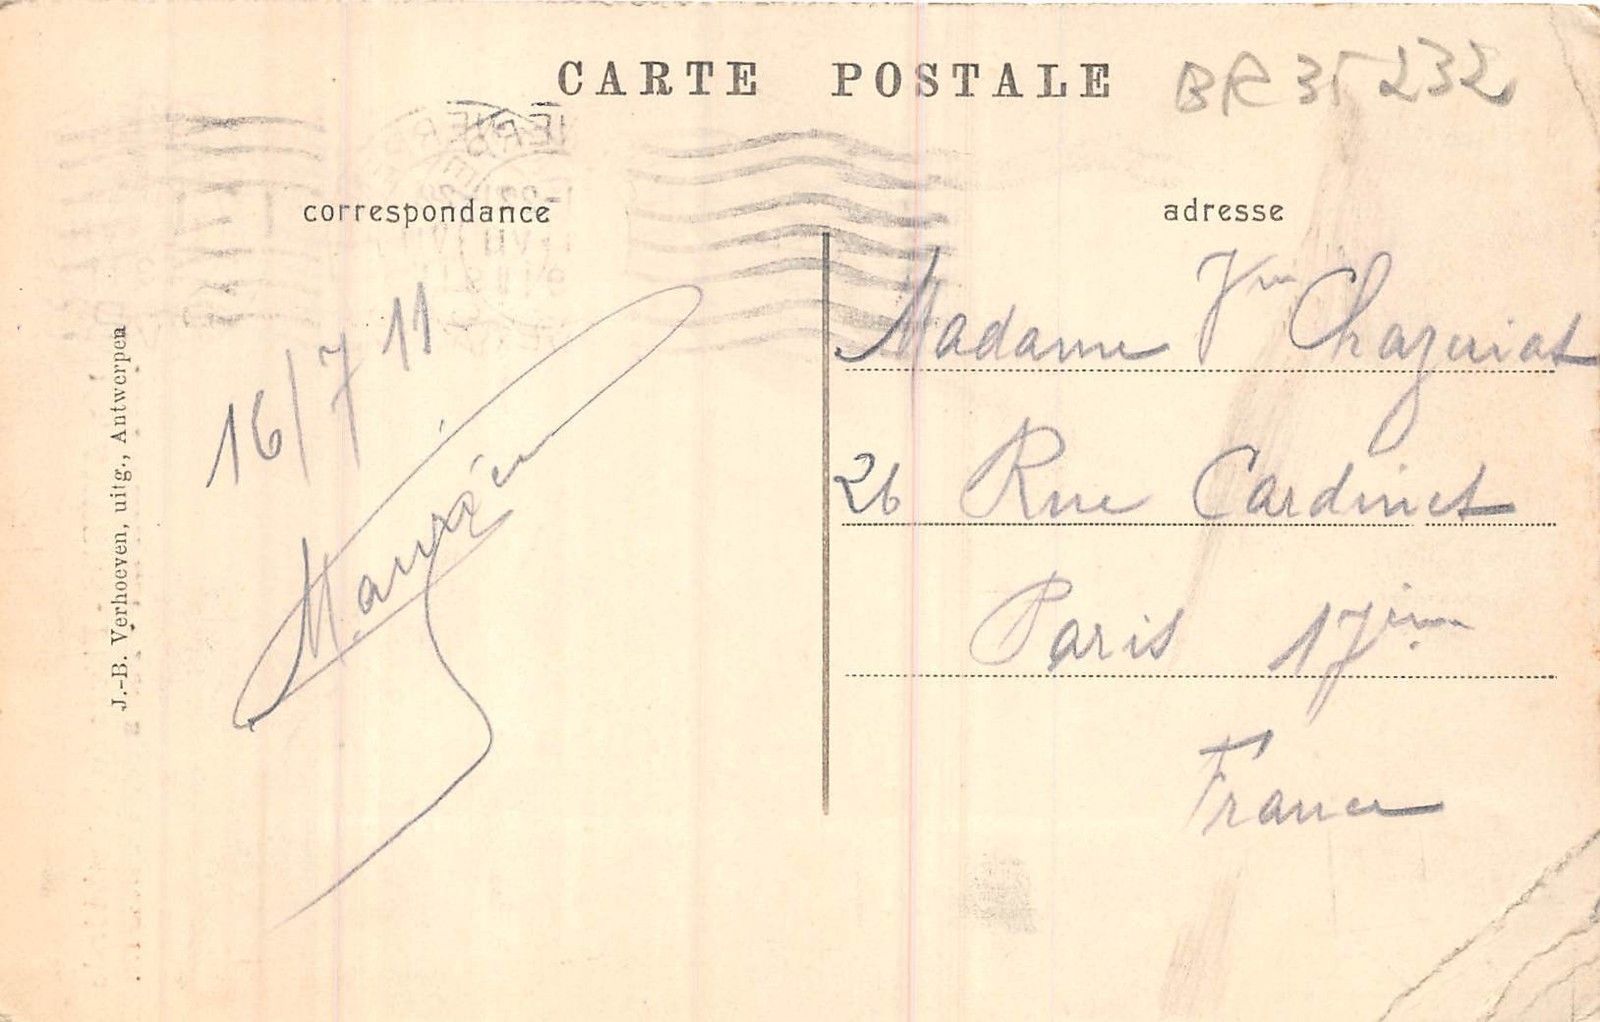 CARTE POSTALE
BR 35 232
correspondance
adresse
16/7 11
J.-B. Verhoeven, uitg., Antwerpen
Madame Vve
26 Rue Cardinet
Paris 17ième
France